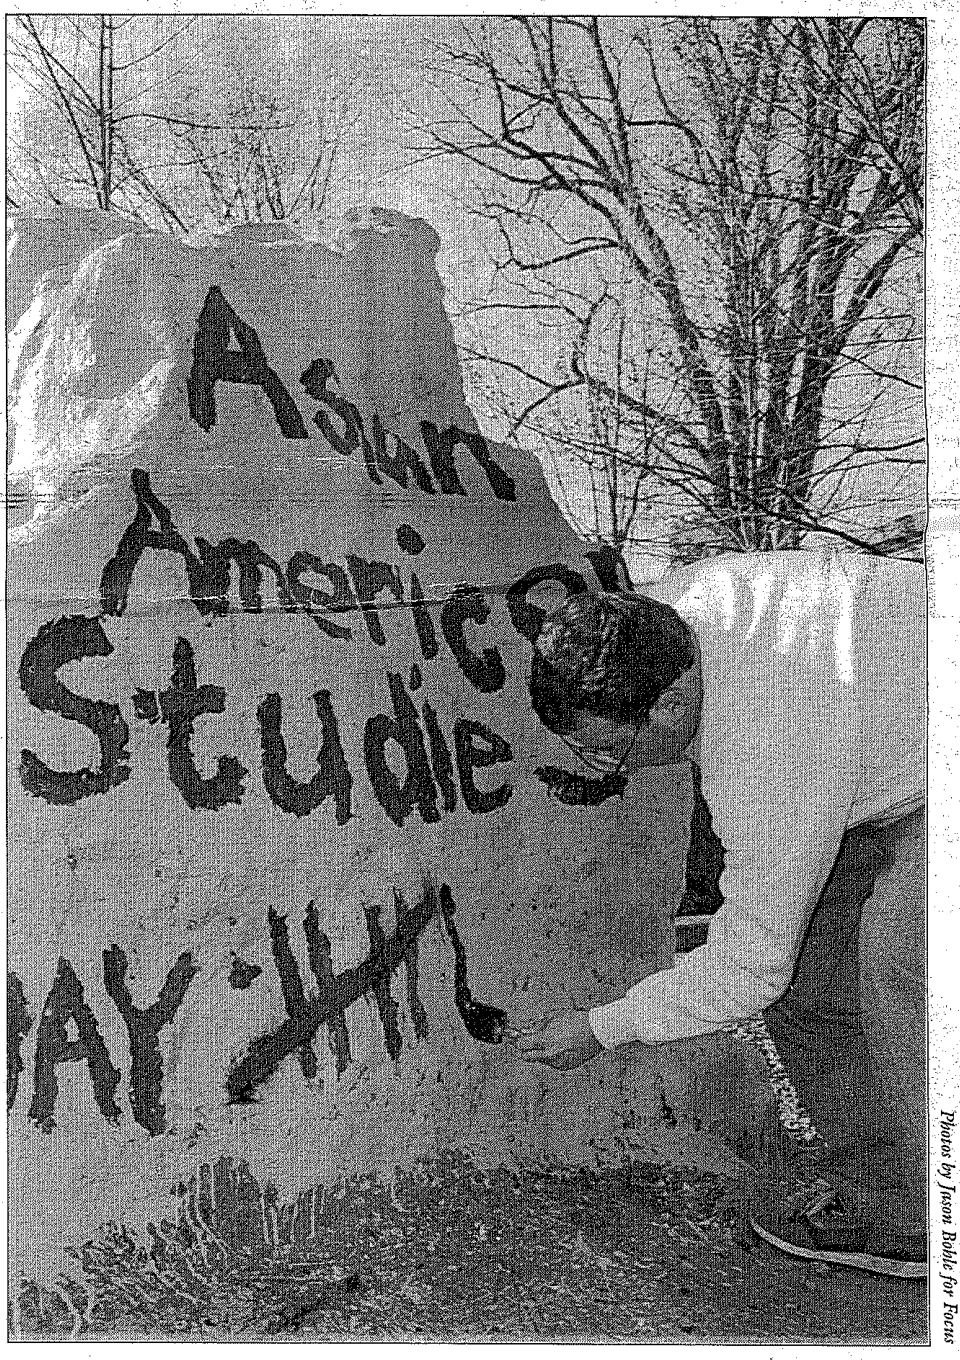 Asian
American
Studies
DAY: 𝍸 |
Photos by Jason Bohle for Focus